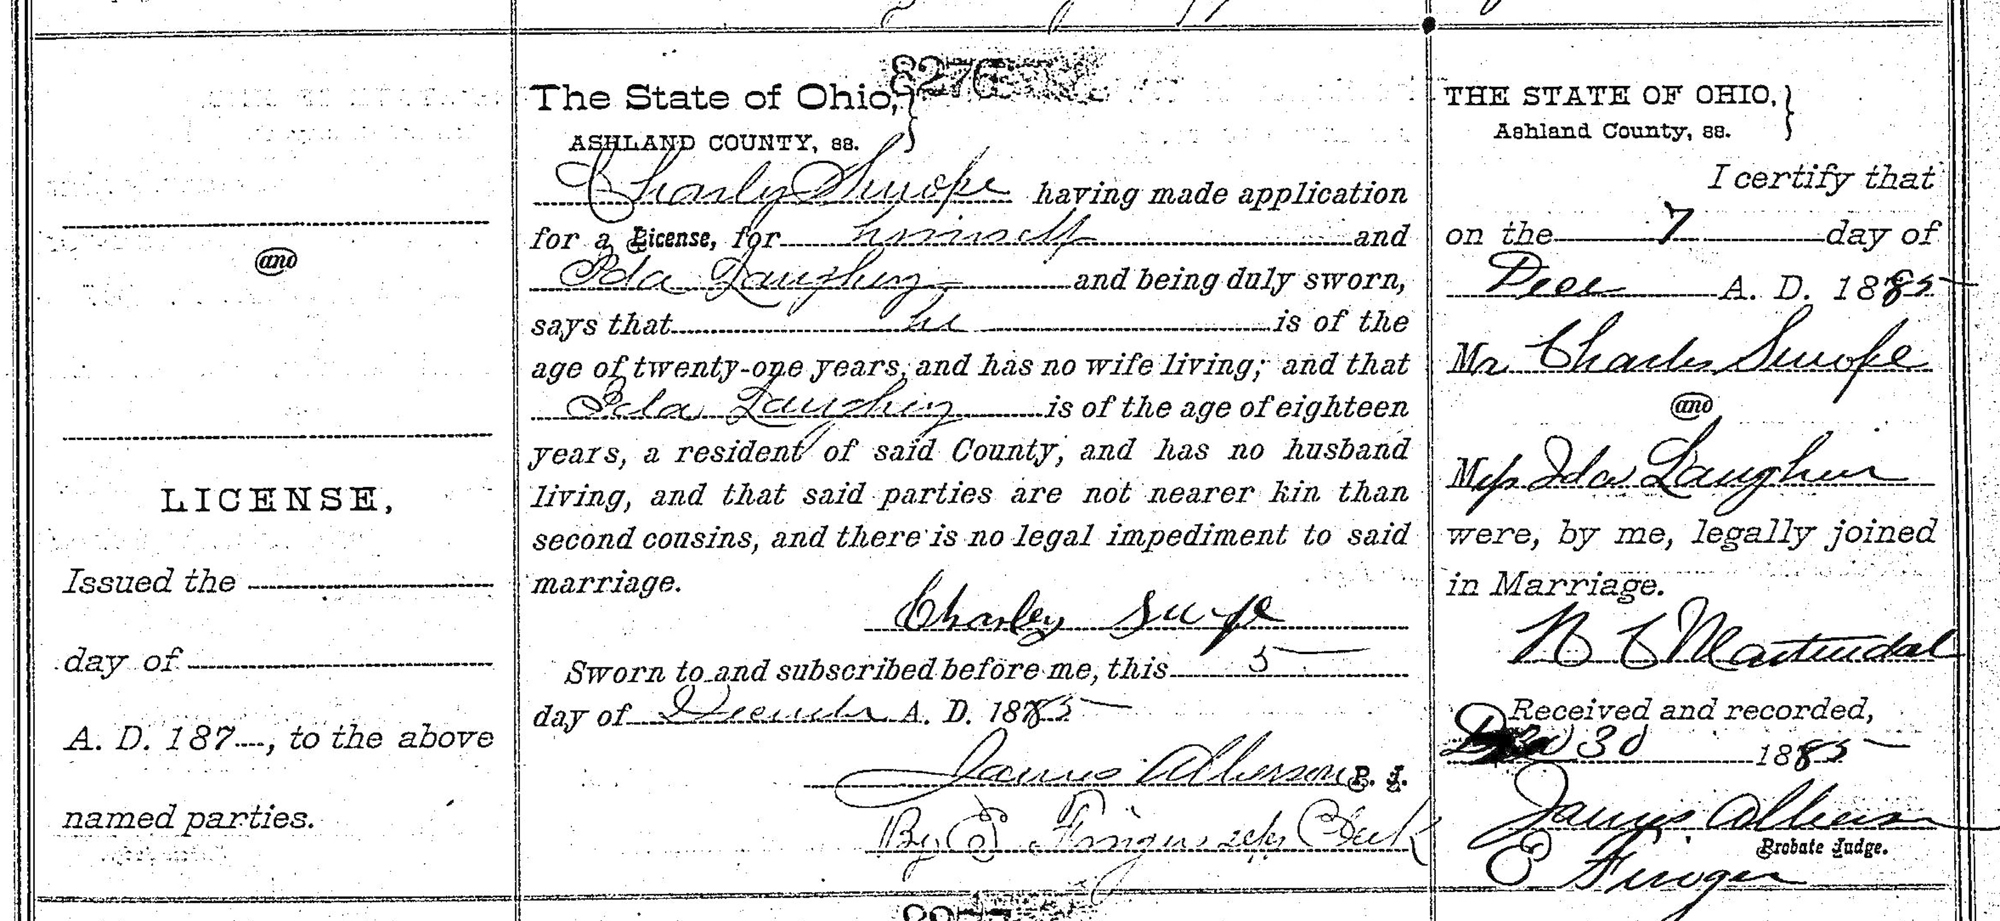 and
LICENSE,
Issued the
day of
A. D. 187 , to the above
named parties.
8276
The State of Ohio,
ASHLAND COUNTY, ss.
Charley Swope having made application
for a License, for himself and
Ida Laughery and being duly sworn,
says that he is of the
age of twenty-one years, and has no wife living; and that
Ida Laughery is of the age of eighteen
years, a resident of said County, and has no husband
living, and that said parties are not nearer kin than
second cousins, and there is no legal impediment to said
marriage.
Charley
Sworn to and subscribed before me, this 5
day of December A. D. 1885
James Alberson P. J.
By E Finger Clerk
THE STATE OF OHIO,
Ashland County, ss.
I certify that
on the 7 day of
Dec A. D. 1885
Mr Charles Swope
and
Miss Ida
were, by me, legally joined
in Marriage.
Received and recorded,
30 1885
James Alberson
Probate Judge.
E Finger